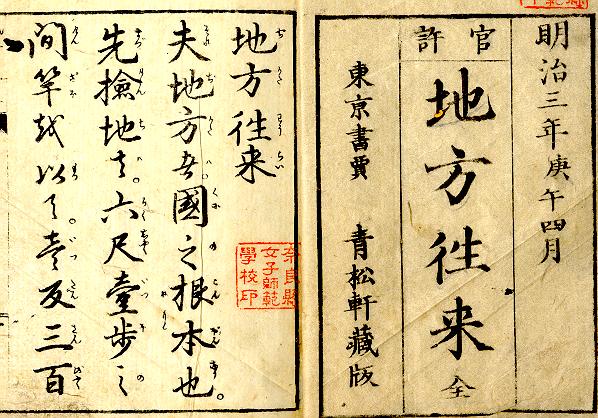 明治三年庚午四月
官許
地方徃来 全
東京書賈 青松軒藏版
地方徃来
夫地方者國之根本也。
先撿地者。六尺壹歩之
間竿越以て。壹反三百
奈良縣
女子師範
學校印